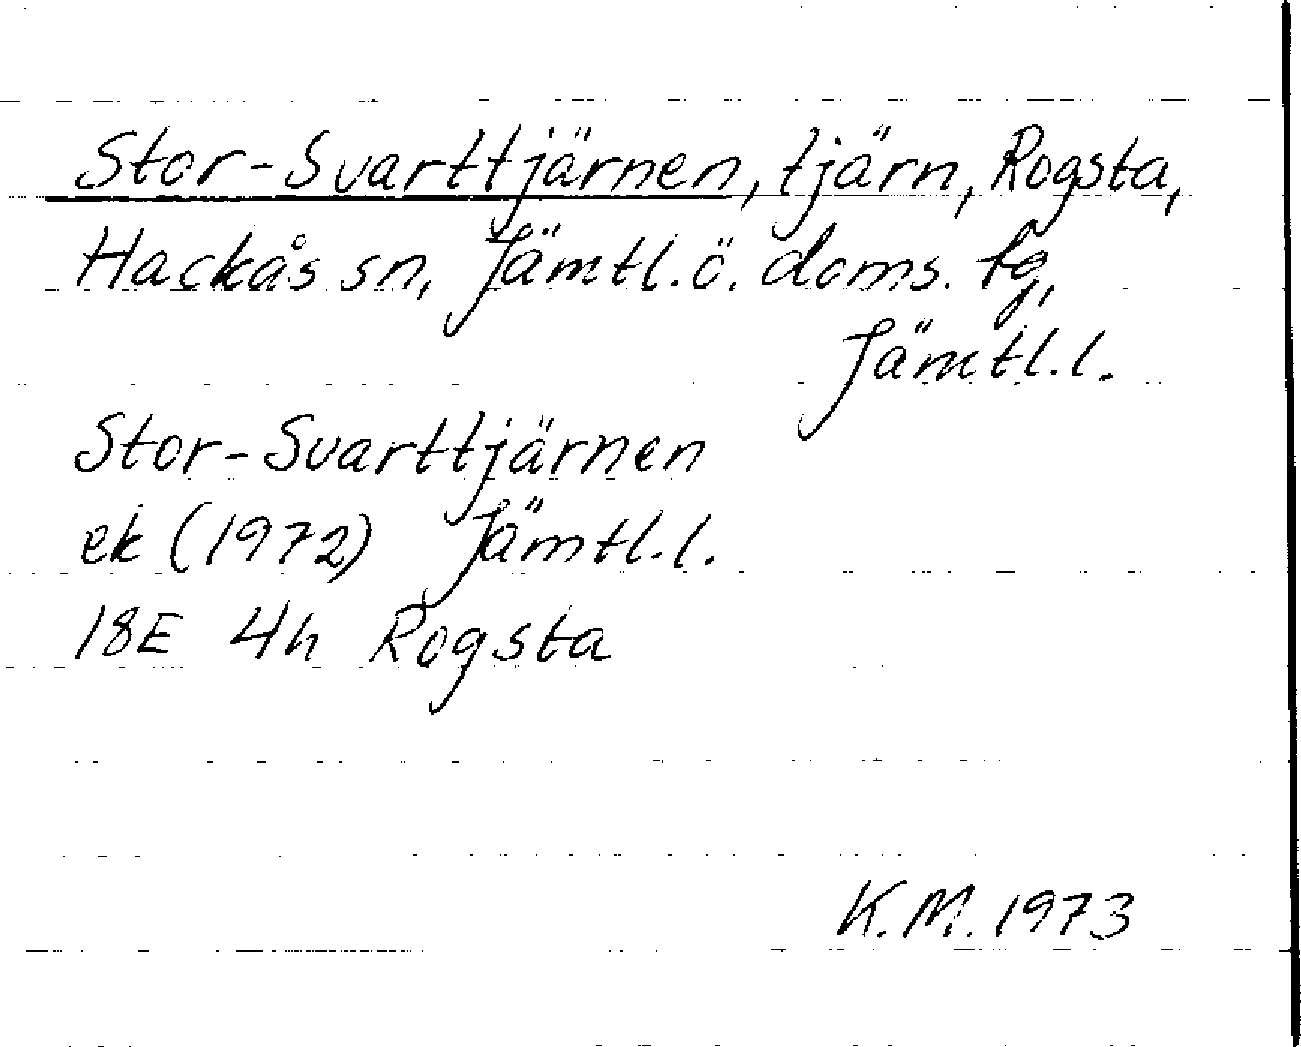 Stor-Svarttjärnen, tjärn, Rogsta,
Hackås sn, Jämtl.ö. doms. tg,
Jämtl.l.
Stor-Svarttjärnen
ek (1972) Jämtl.l.
18E 4h Rogsta
K.M. 1973